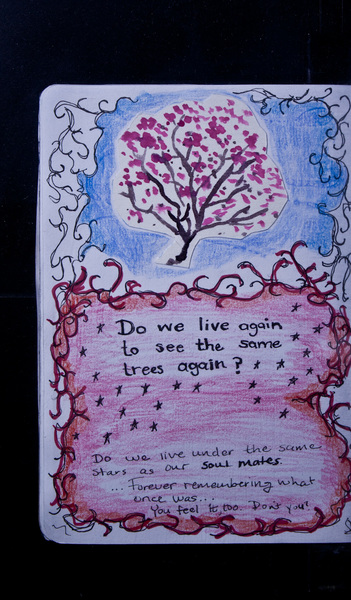 Do we live again
to see the same
trees again?
Do we live under the same
stars as our soul mates.
... Forever remembering what
once was...
You feel it too. Don't you?